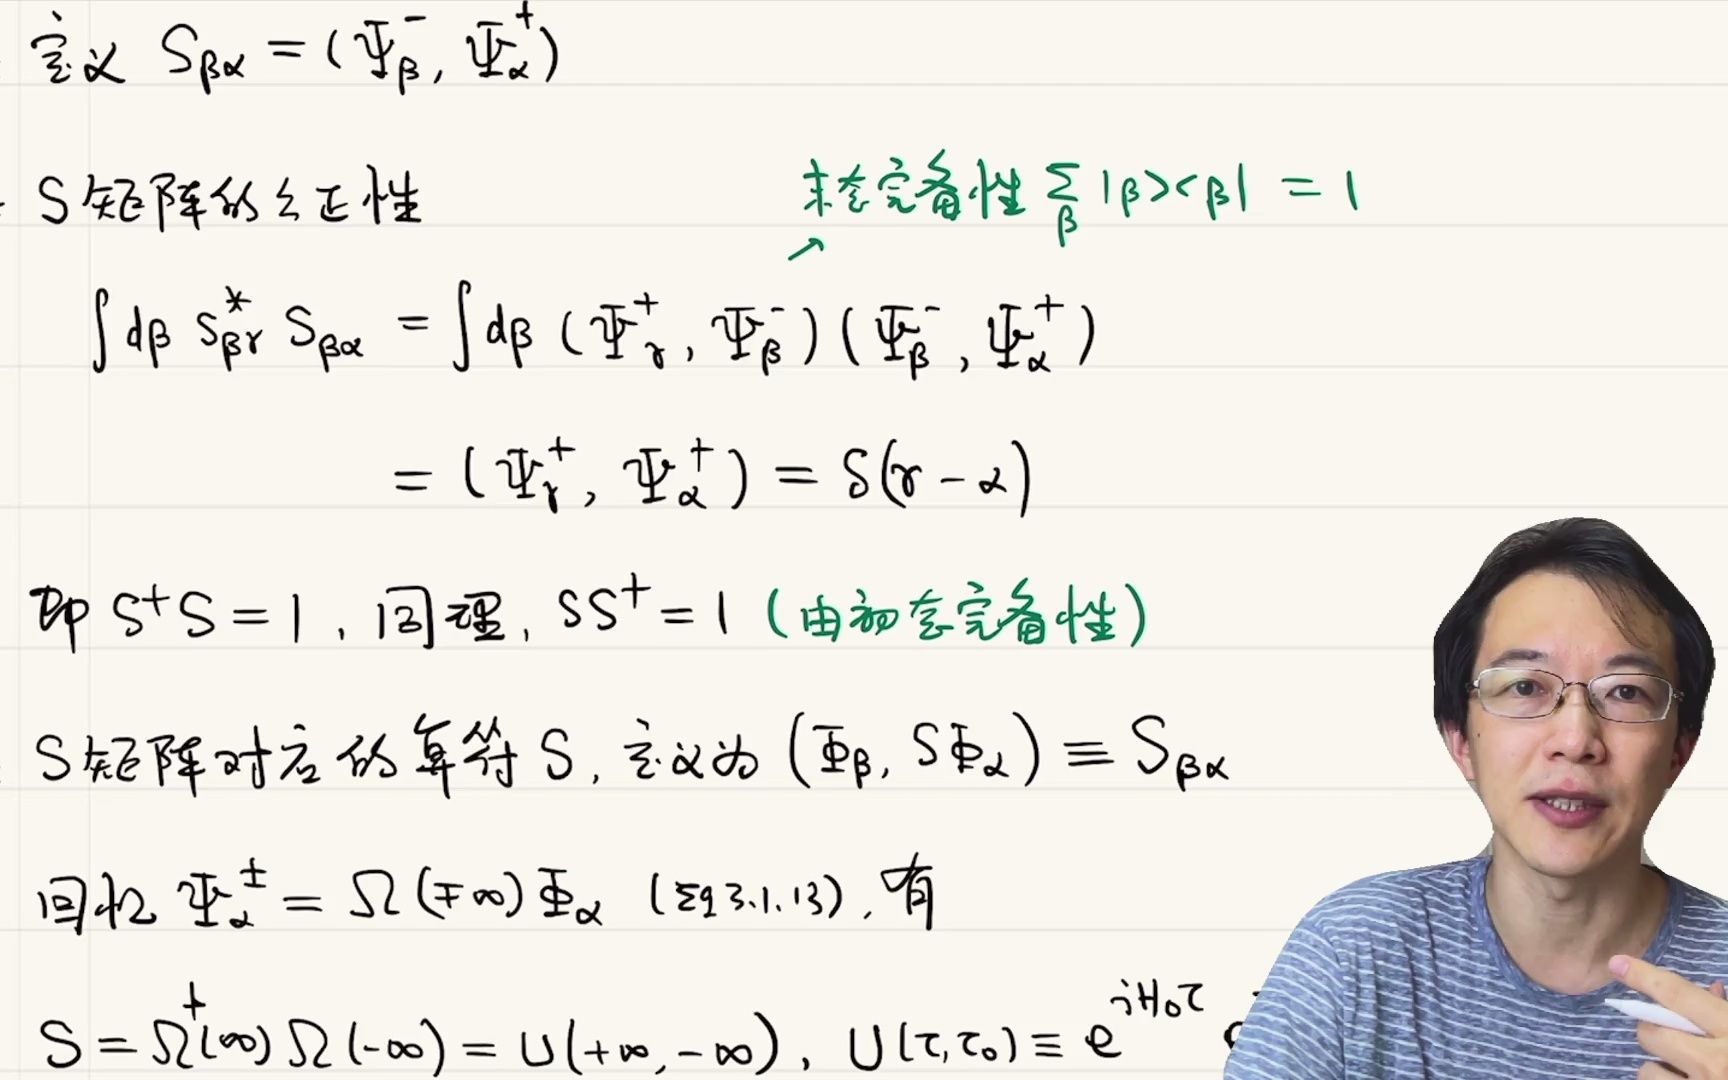 定义 S_βα = (Ψ_β^-, Ψ_α^+)
S矩阵的幺正性
末态完备性 Σ_β |β><β| = 1
↗
∫dβ S^*_βγ S_βα = ∫dβ (Ψ_γ^+, Ψ_β^-)(Ψ_β^-, Ψ_α^+)
= (Ψ_γ^+, Ψ_α^+) = δ(γ-α)
即 S^+S = 1, 同理, SS^+ = 1 (由初态完备性)
S矩阵对应的算符 S, 定义为 (Φ_β, SΦ_α) ≡ S_βα
回忆 Ψ_α^± = Ω(∓∞)Φ_α (Eq 3.1.13), 有
S = Ω^+(∞)Ω(-∞) = U(+∞,-∞), U(τ,τ_0) ≡ e^{iH_0τ}